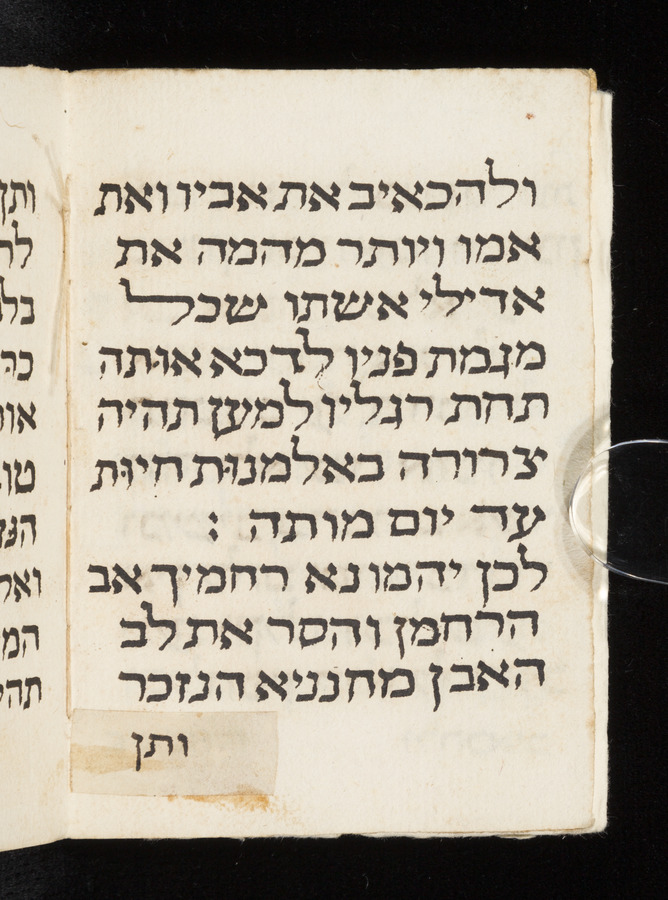 ולהכאיב את אביו ואת
אמו ויותר מהמה את
אדילי אשתו שכל
מגמת פניו לדכא אותה
תחת רגליו למען תהיה
צרורה באלמנות חיות
עד יום מותה :
לכן יהמו נא רחמיך אב
הרחמן והסר את לב
האבן מחנניא הנזכר
ותן